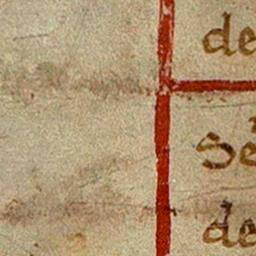 de
Se
de